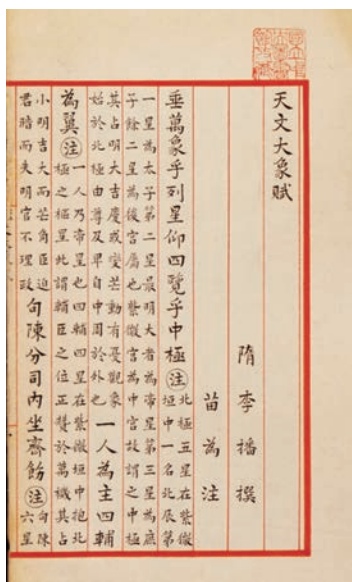 天文大象賦
隋李播撰
苗為注
垂萬象乎列星仰四覽乎中極注北極五星在紫微
垣中一名北辰第
一星為太子第二星最明大者為帝星第三星為庶
子餘二星為後宮屬也紫微宮為中宮故謂之中極
其占明大吉慶或變芒動有憂觀象
始於北極由尊及卑自中周於外也一人為主四輔
為翼注一人乃帝星也四輔四星在紫微垣中抱北
極之樞星此謂輔臣之位正贊於萬機其占
小明吉大而芒角臣迫
君暗而失明官不理政句陳分司內坐齊飭注句陳
六星